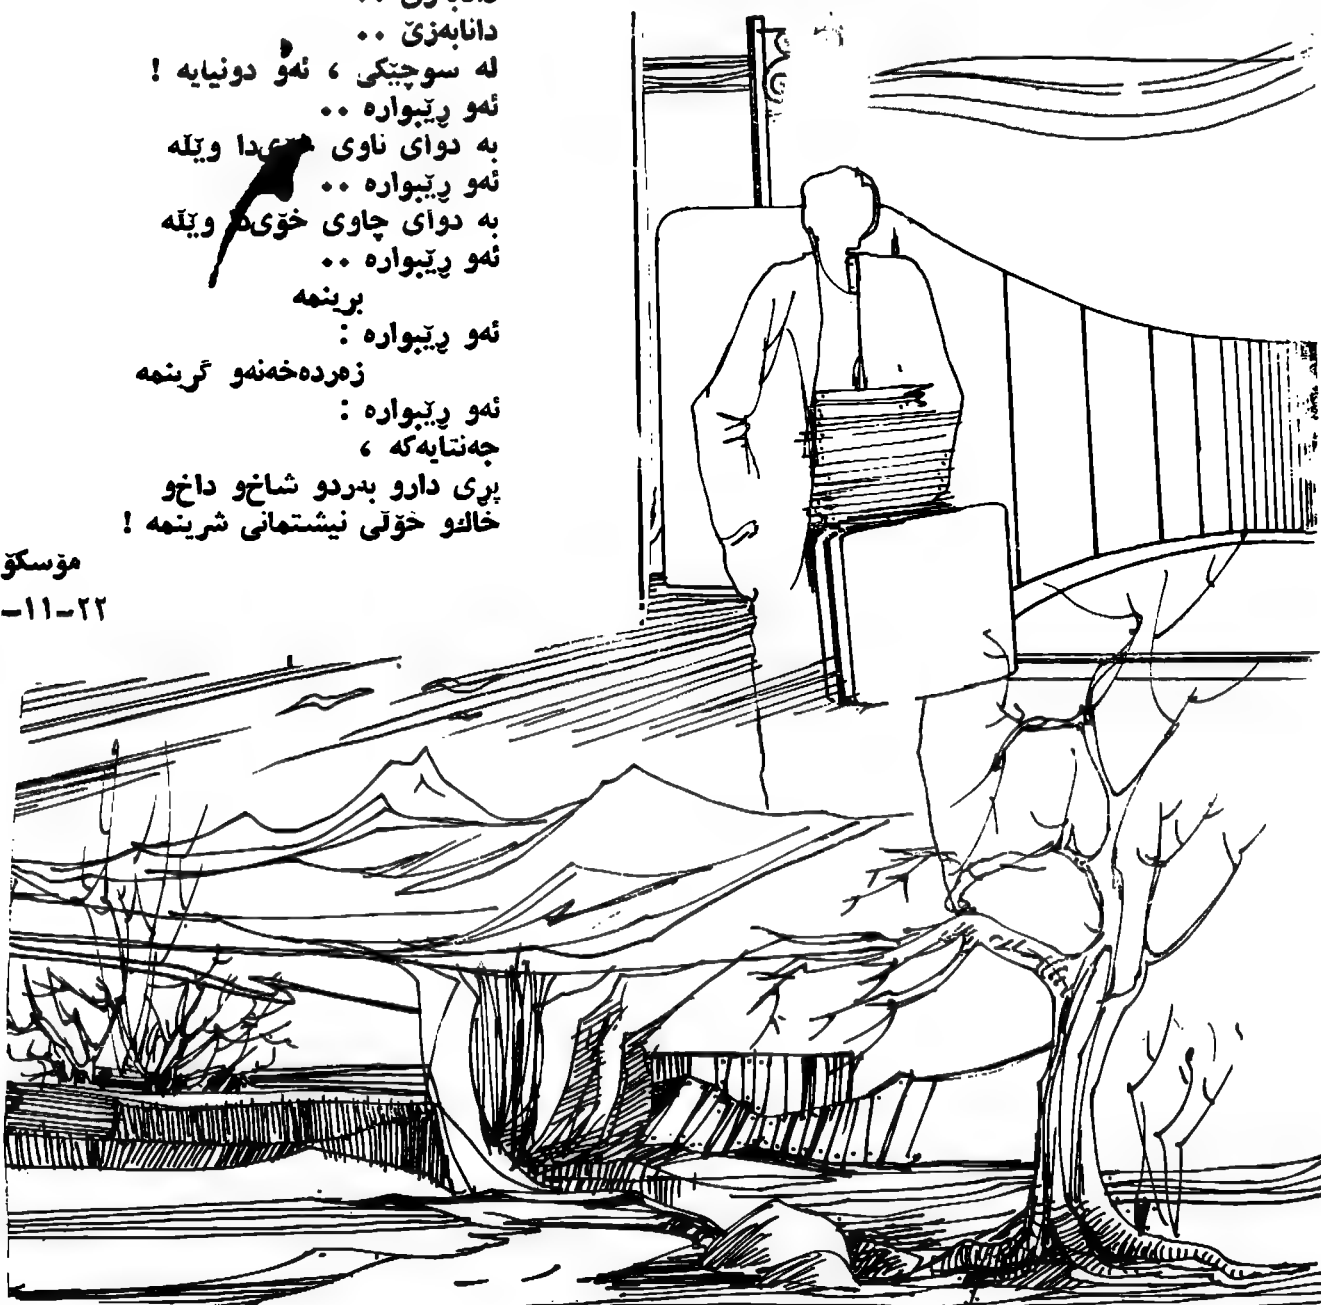 دانابەزێ ٠٠
لە سوچێکی ، ئەو دونیایە !
ئەو ڕێبوارە ٠٠
بە دوای ناوی خۆیدا وێڵە
ئەو ڕێبوارە ٠٠
بە دوای چاوی خۆیدا وێڵە
ئەو ڕێبوارە ٠٠
برینمە
ئەو ڕێبوارە :
زەردەخەنەو گرینمە
ئەو ڕێبوارە :
جەنتایەکە ،
پڕی دارو بەردو شاخ‌و داخ‌و
خاك‌و خۆڵی نیشتمانی شرینمە !
مۆسکۆ
٢٢-١١-